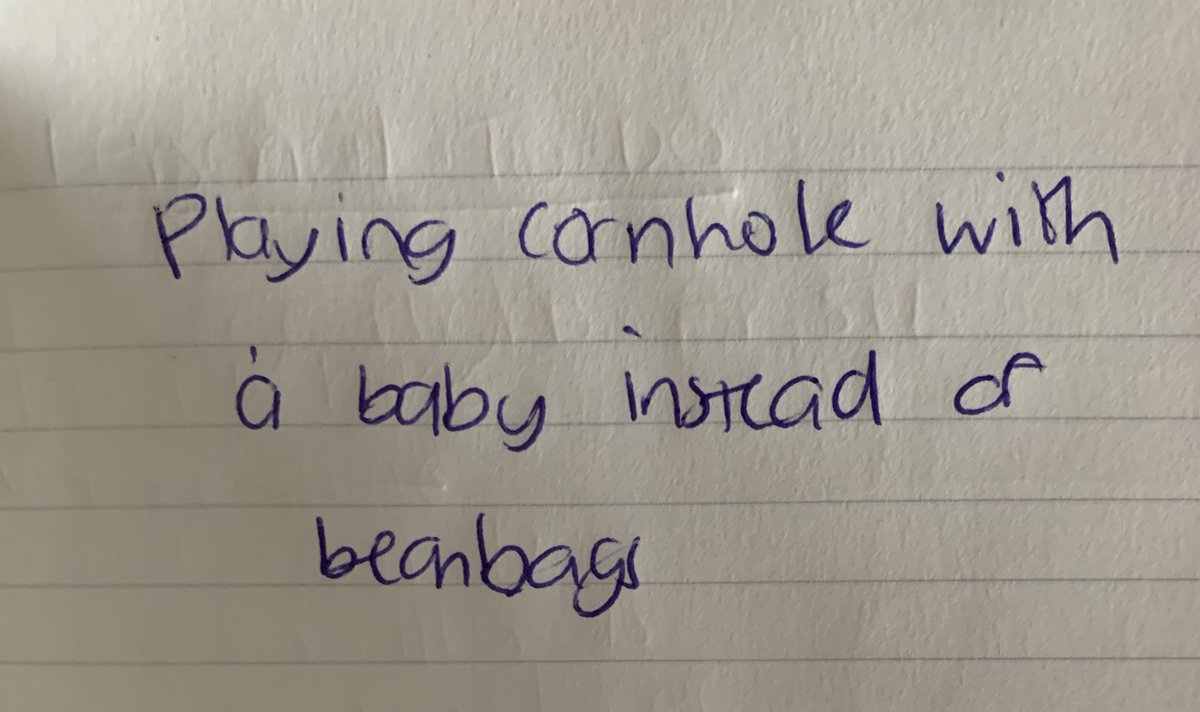 Playing cornhole with
a baby instead of
beanbags